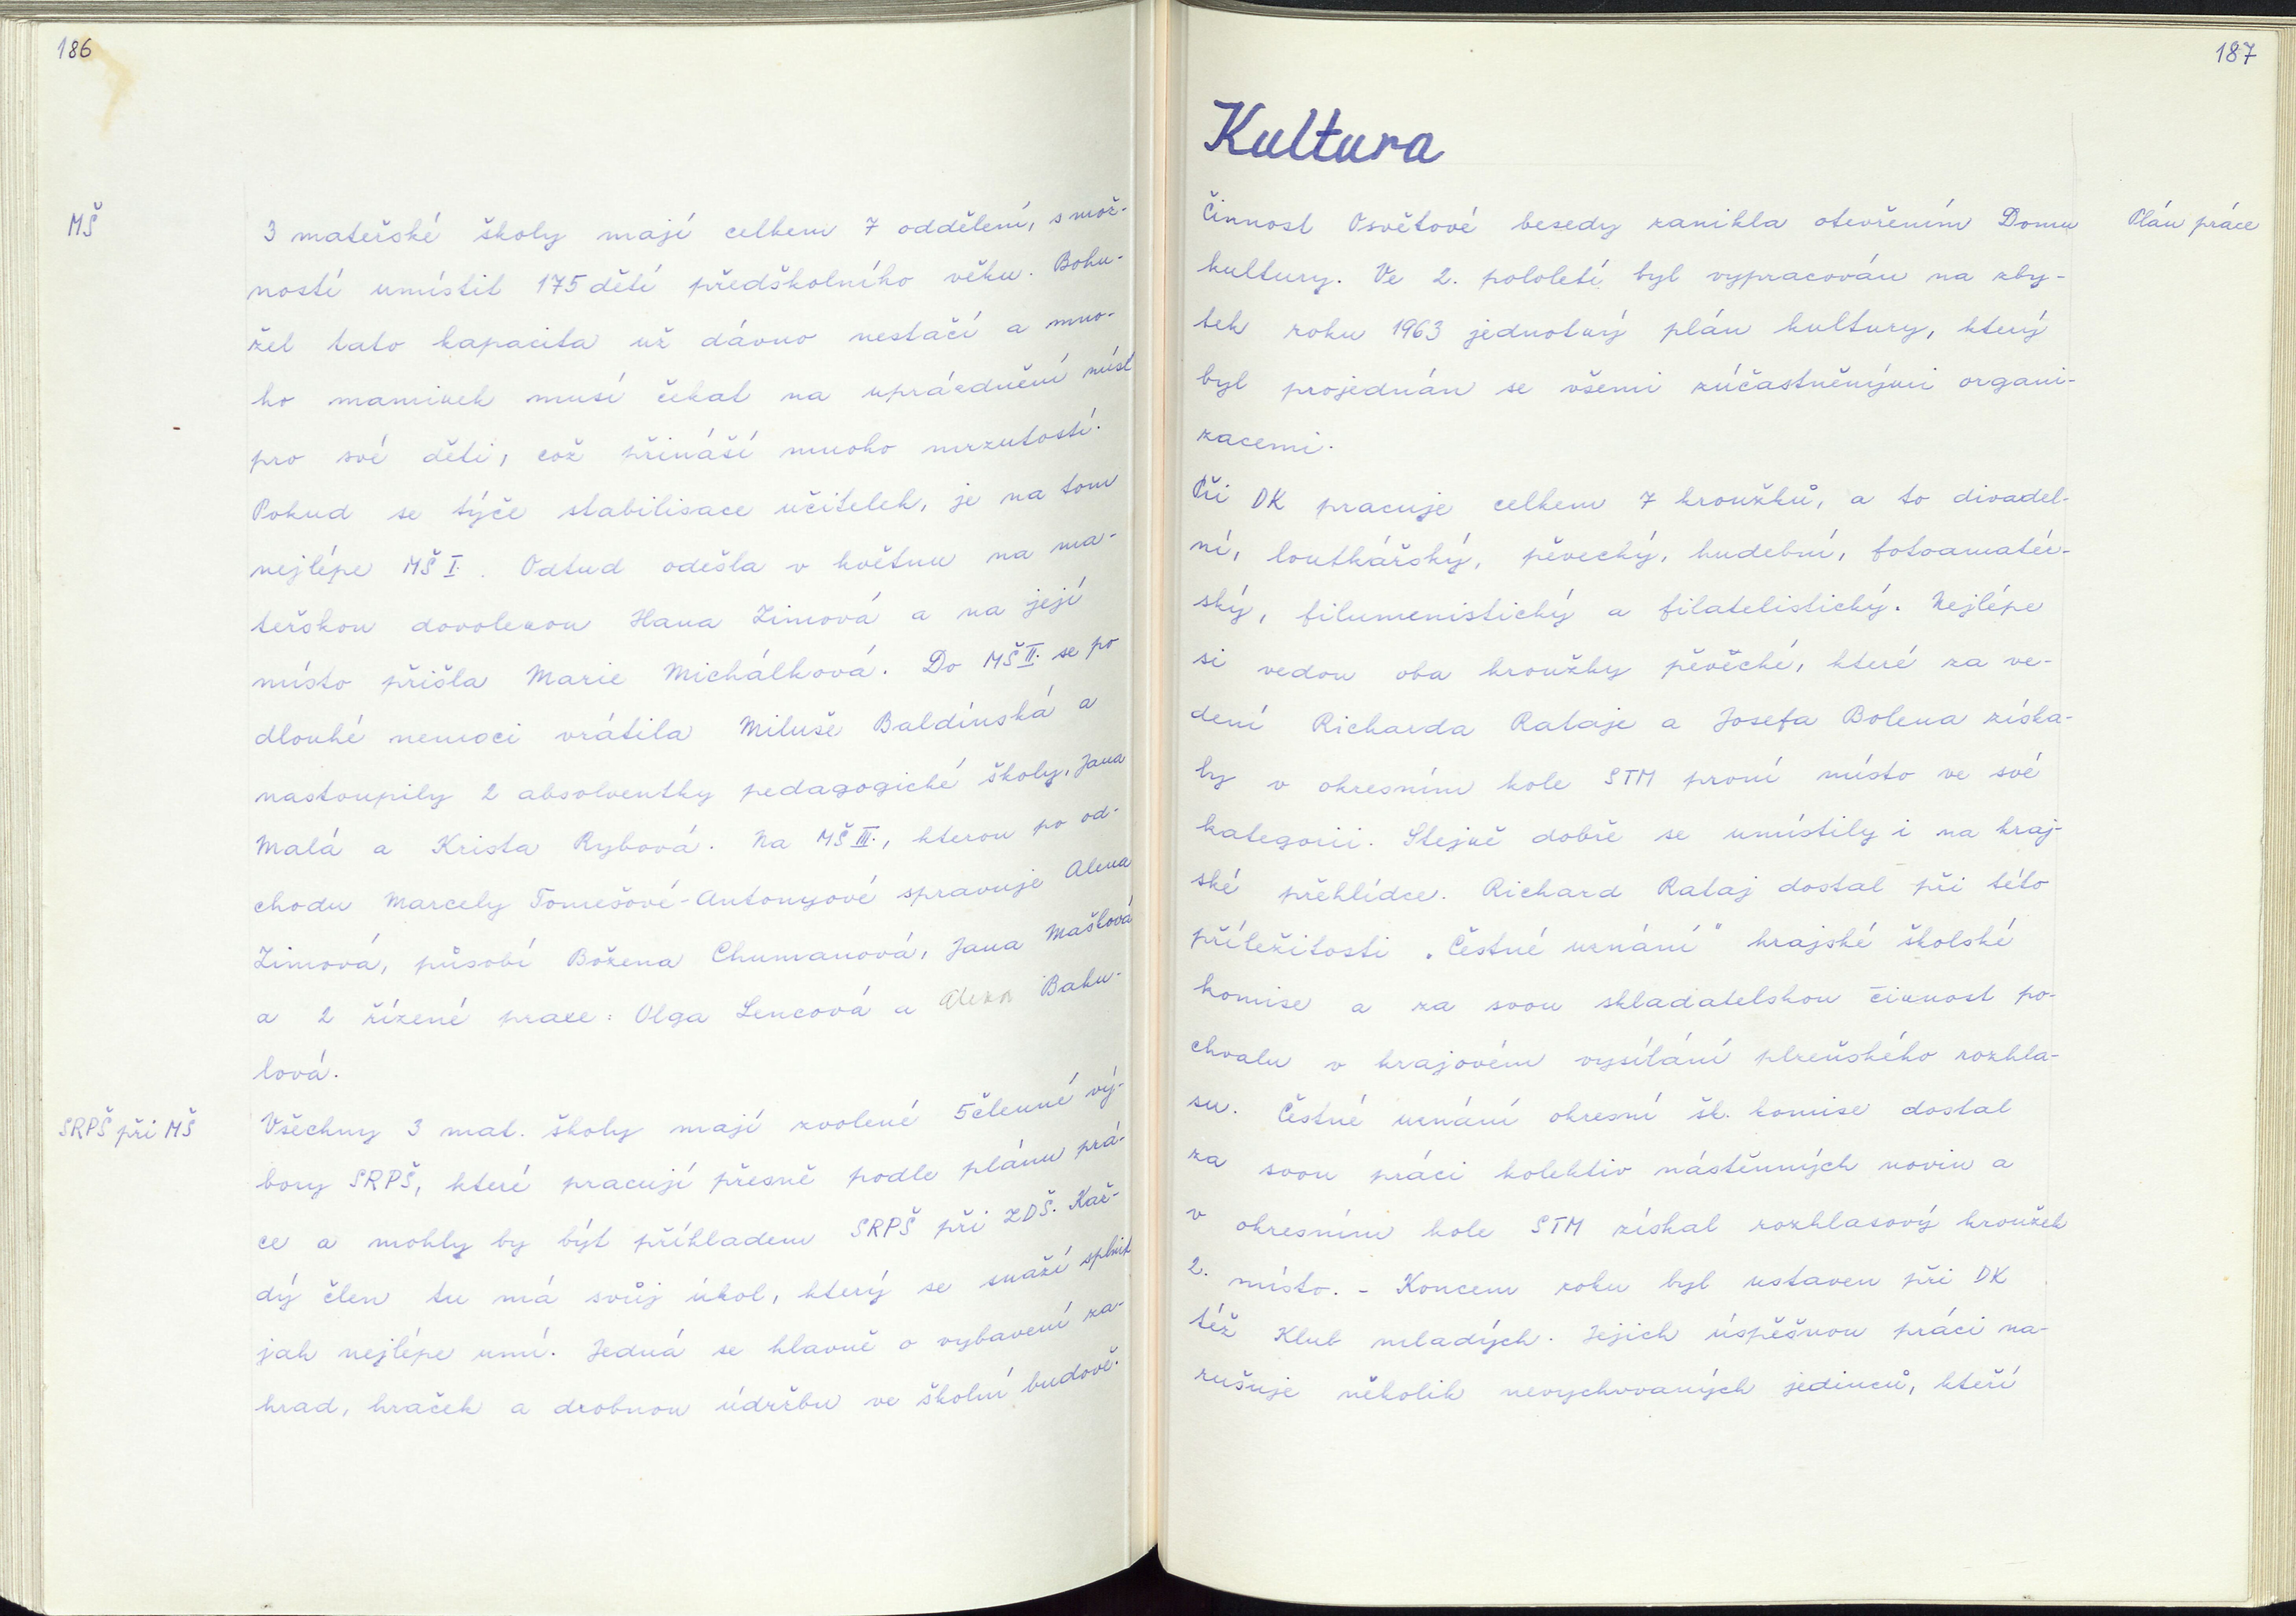 186
MŠ
3 mateřské školy mají celkem 7 oddělení, s mož-
ností umístit 175 dětí předškolního věku. Bohu-
žel tato kapacita už dávno nestačí a mno-
ho maminek musí čekat na uprázdnění míst
pro své děti, což přináší mnoho mrzutostí.
Pokud se týče stabilisace učitelek, je na tom
nejlépe MŠ I. Odtud odešla v květnu na ma-
teřskou dovolenou Hana Zimová a na její
místo přišla Marie Michálková. Do MŠ II. se po
dlouhé nemoci vrátila Miluše Baldínská a
nastoupily 2 absolventky pedagogické školy, Jana
Malá a Krista Rybová. Na MŠ III., kterou po od-
chodu Marcely Tomešové-Antonyové spravuje Alena
Zimová, působí Božena Chumanová, Jana Mašková
a 2 řízené praxe: Olga Lencová a Alena Baku-
lová.
SRPŠ při MŠ
Všechny 3 mat. školy mají zvolené 5členné vý-
bory SRPŠ, které pracují přesně podle plánu prá-
ce a mohly by být příkladem SRPŠ při ZDŠ. Kaž-
dý člen tu má svůj úkol, který se snaží splnit
jak nejlépe umí. Jedná se hlavně o vybavení za-
hrad, hraček a drobnou údržbu ve školní budově.
187
Kultura
Plán práce
Činnost Osvětové besedy zanikla otevřením Domu
kultury. Ve 2. pololetí byl vypracován na zby-
tek roku 1963 jednotný plán kultury, který
byl projednán se všemi zúčastněnými organi-
zacemi.
Při DK pracuje celkem 7 kroužků, a to divadel-
ní, loutkářský, pěvecký, hudební, fotoamatér-
ský, filumenistický a filatelistický. Nejlépe
si vedou oba kroužky pěvěcké, které za ve-
dení Richarda Rataje a Josefa Bolena získa-
ly v okresním kole STM první místo ve své
kategorii. Stejně dobře se umístily i na kraj-
ské přehlídce. Richard Rataj dostal při této
příležitosti „Čestné uznání" krajské školské
komise a za svou skladatelskou činnost po-
chvalu v krajovém vysílání plzeňského rozhla-
su. Čestné uznání okresní šk. komise dostal
za svou práci kolektiv nástěnných novin a
v okresním kole STM získal rozhlasový kroužek
2. místo. - Koncem roku byl ustaven při DK
též Klub mladých. Jejich úspěšnou práci na-
rušuje několik nevychovaných jedinců, kteří